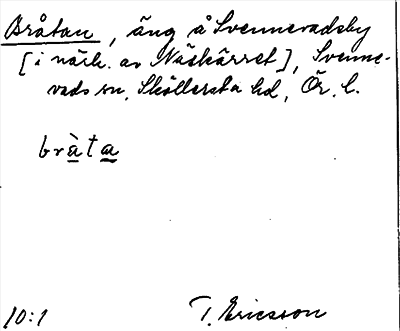 Bråtan, äng å Svennevadsby
[i närh. av Näskärret], Svenne-
vads sn, Sköllersta hd, Ör. l.
bràta
10:1 T. Ericsson